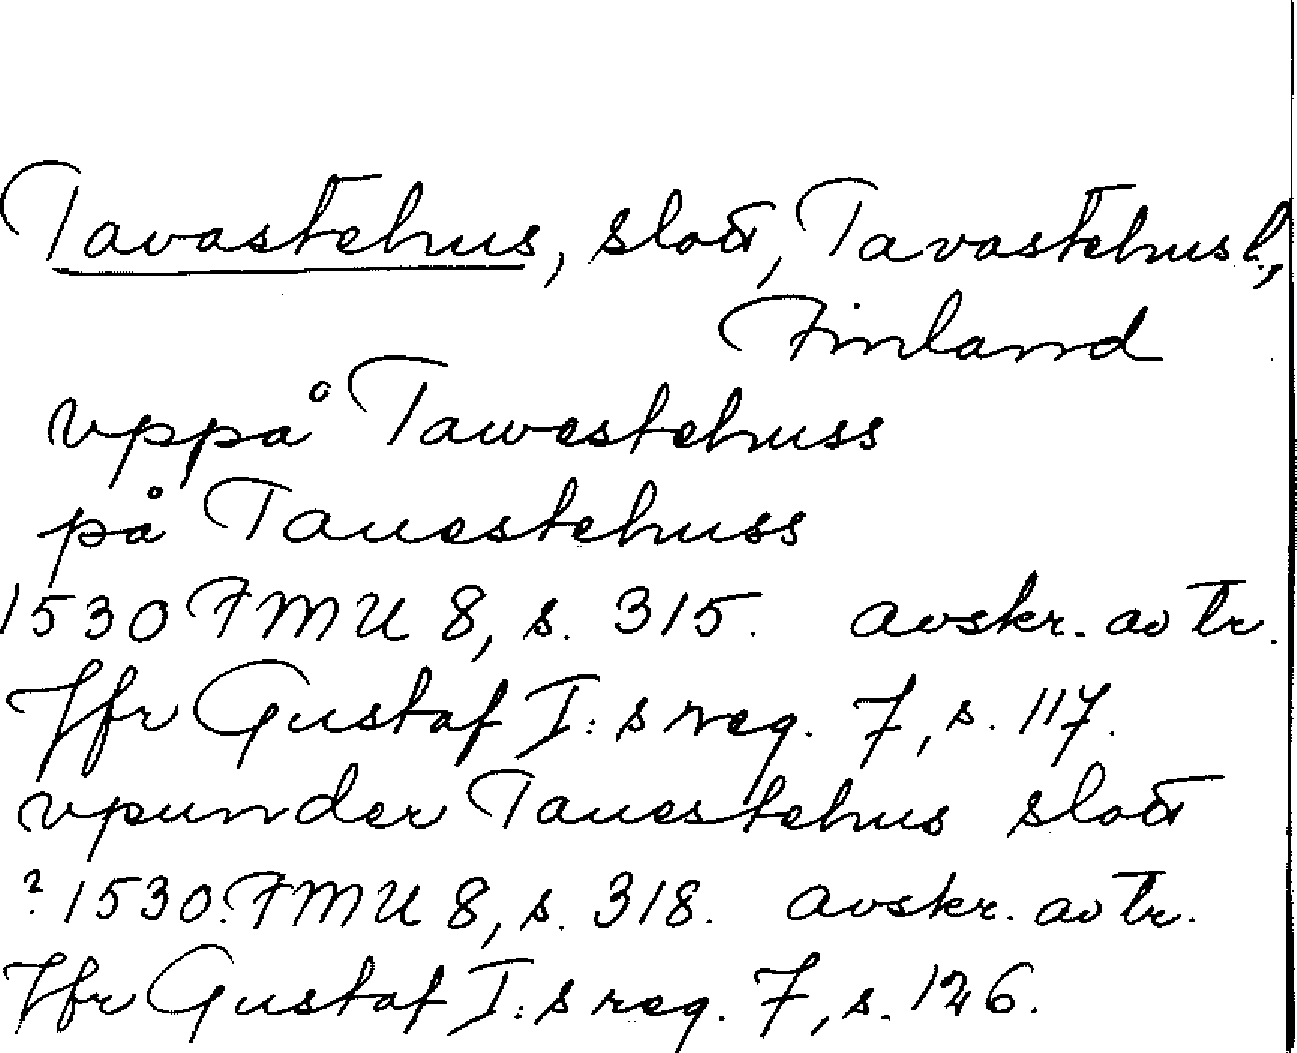 Tavastehus, slott, Tavastehus l.,
Finland
vppå Tawestehuss
på Tauestehuss
1530 FMU 8, s. 315. avskr. av tr.
Jfr Gustaf I:s reg. 7, s. 117.
vpunder Tauestehus slott
? 1530. FMU 8, s. 318. avskr. av tr.
Jfr Gustaf I:s reg. 7, s. 126.